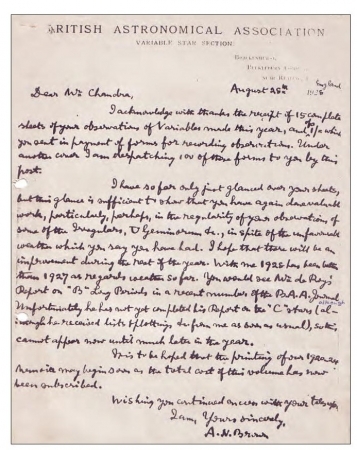 BRITISH ASTRONOMICAL ASSOCIATION
VARIABLE STAR SECTION
England
August 28th 1928
Dear Mr Chandra,
I acknowledge with thanks the receipt of 15 complete
sheets of your observations of Variables made this year, and which
you sent in payment of forms for recording observations. Under
another cover I am despatching 100 of these forms to you by this
post.
I have so far only just glanced over your sheets,
but this glance is sufficient to show that you have again done valuable
work, particularly, perhaps, in the regularity of your observations of
some of the Irregulars, U Geminorum &c., in spite of the unfavourable
weather which you say you have had. I hope that there will be an
improvement during the rest of the year. With me 1928 has been better
than 1927 as regards weather so far. You would see Mr de Roy's
Report on "B" Long Periods in a recent number of the B.A.A. Journal
Unfortunately he has not yet completed his Report on the "C" stars (al-
though he received lists & plottings from me as usual), so this
cannot appear now until much later in the year.
It is to be hoped that the printing of our
Memoirs may begin soon as the total cost of this volume has now
been subscribed.
Wishing you continued success with your telescope,
I am, Yours sincerely,
A. N. Brown